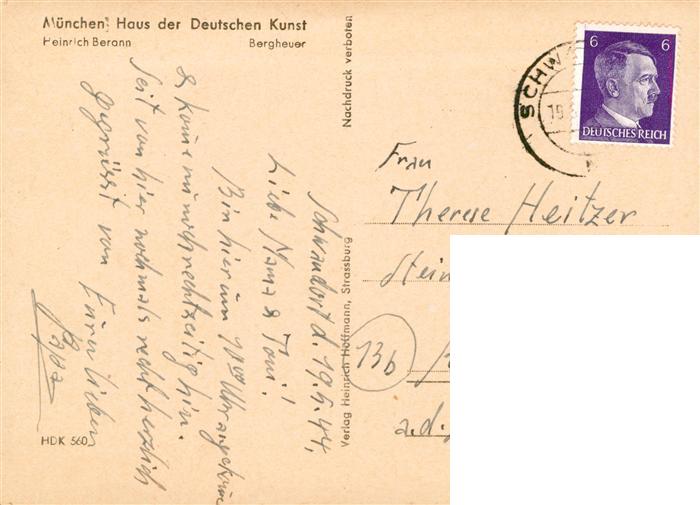 München, Haus der Deutschen Kunst
Heinrich Berann Bergheuer
Schwandorf d. 19.5.44.
Liebe Mama & Toni!
Bin hier um 10 Uhr angekommen
& komme nur noch rechtzeitig hin.
Seit von hier nochmals recht herzlich
gegrüsst von Euren lieben
Papa
HDK 560
Nachdruck verboten
Verlag Heinrich Hoffmann, Strassburg
SCHW
19.
6 6
DEUTSCHES REICH
Frau
Therese Heitzer
Stein
13b
a.d.